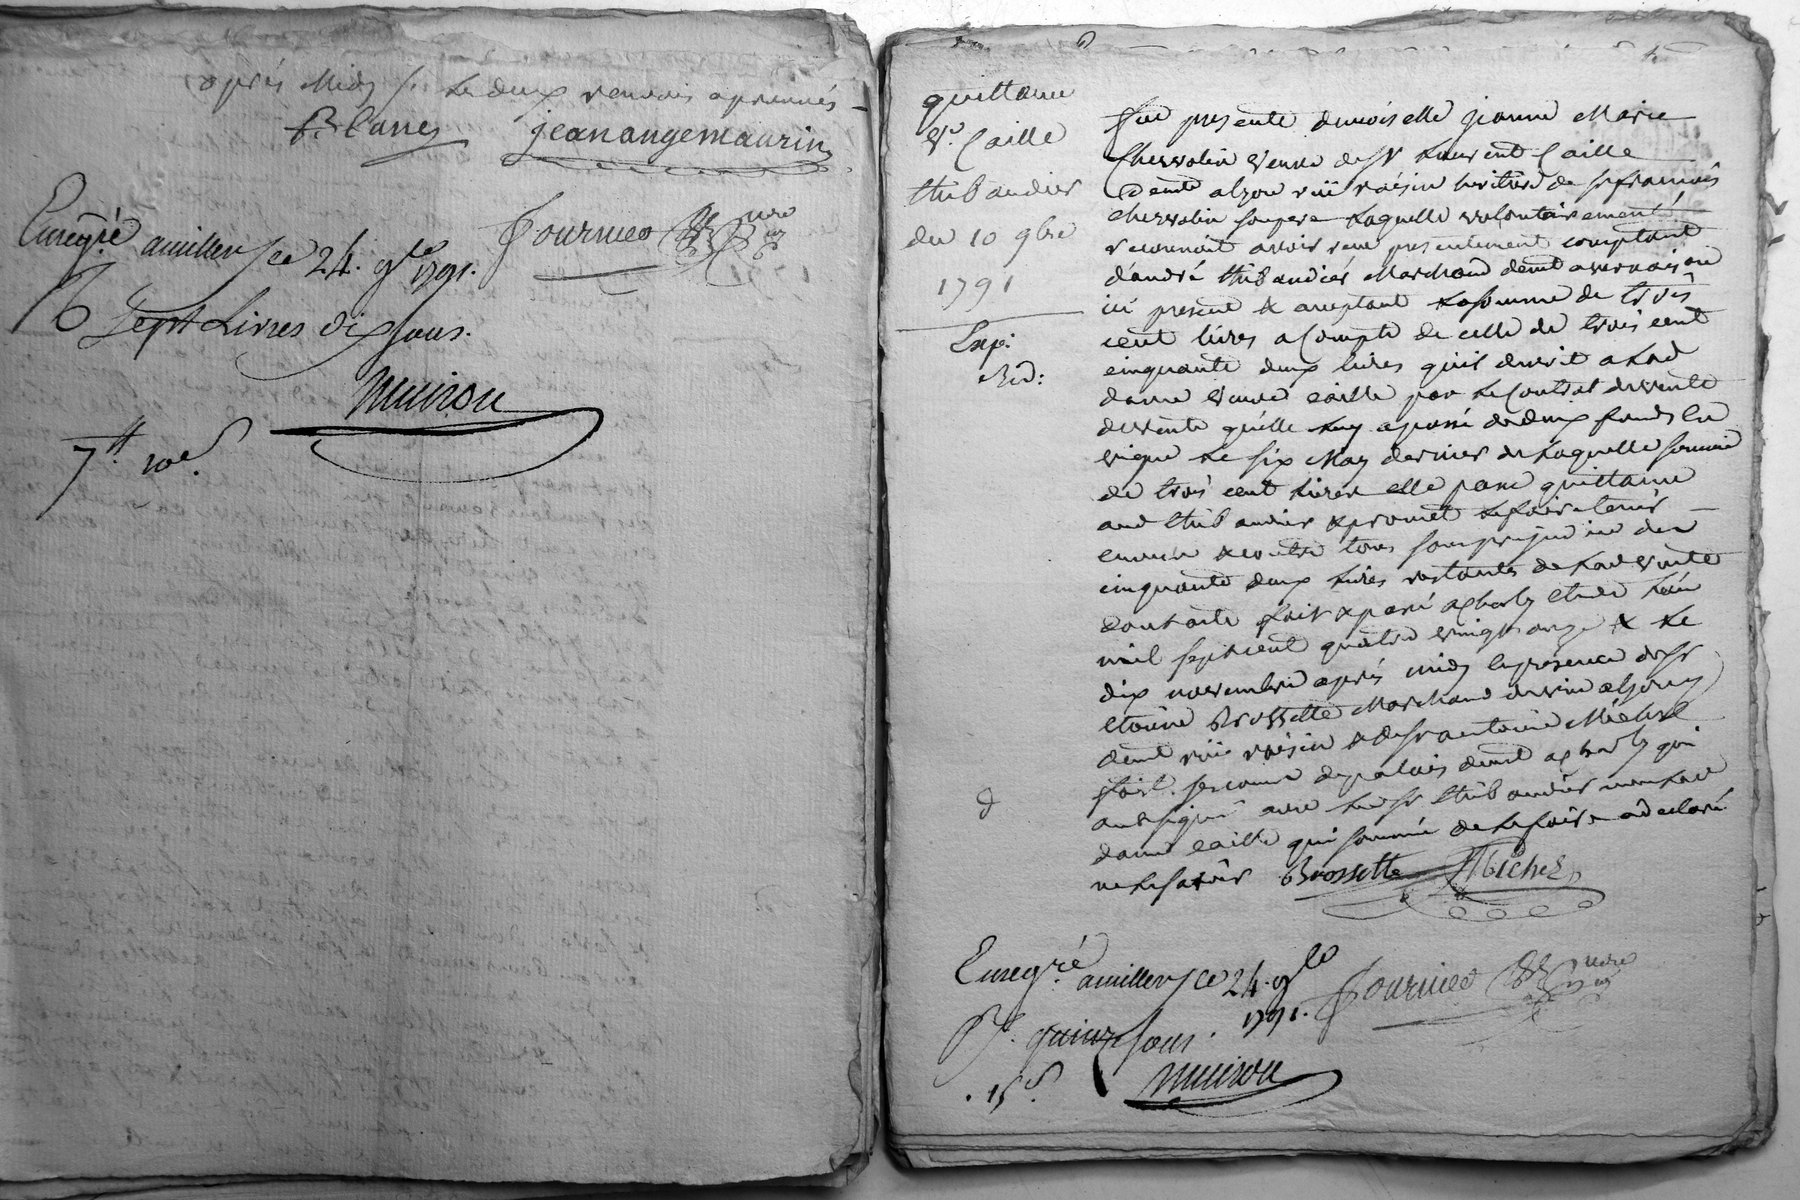 après Midy /. Le deux renvois aprouvés
f. blanc jeanangemaurin
Fournier nre
Enregré a millery ce 24. 9bre 1791.
R Sept Livres dix sous.
Muiron
7# 10s.
quittance
Ve. Caille
thibaudier
du 10 9bre
1791
Exp:
Red:
fut presente demoiselle jeanne Marie
Chervolin veuve de Sr Laurent Caille
demt a heritiere de Sr françois
chervolin son pere Laquelle volontairement
reconnoit avoir reçu presentement comptant
d'andré thibaudier Marchand demt a
ici present & aceptant La somme de trois
cent livres a Compte de celle de trois cent
cinquante deux livres qu'il devoit a Lad
dame veuve caille par Le Contrat de vente
de vente qu'elle Luy a passé de deux fonds en
vigne Le six May dernier de Laquelle somme
de trois cent Livres elle passe quittance
aud thibaudier & promet Le faire tenir
envers & contre tous sans prejudice des
cinquante deux Livres restantes de Lad vente
dont acte fait & passé a Charly etude L'an
mil sept cent quatre vingt onze & Le
dix novembre après midy En presence de Sr
etienne Brossette Marchand
demt & de Sr antoine Michel
demt a charly qui
ont signé avec Led Sr thibaudier non Lad
dame caille qui sommée de Le faire a declaré
ne Le savoir Brossette Michel
Enregré a millery ce 24. 9bre
1791. Fournier nre
R. quinze sous.
15s. Muiron